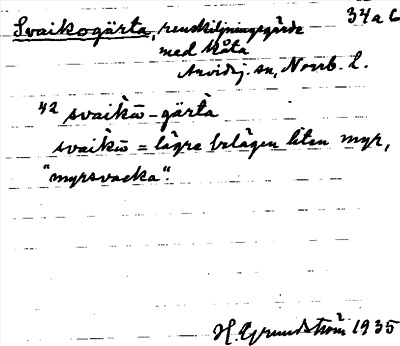 34 a C
Svaikogärta, renskiljningsgärde
med kåta
Arvidsj. sn, Norrb. L.
42 svaikω̄-gärta
svaikω̄ = lägre belägen liten myr,
"myrsvacka".
H. Grundström 1935